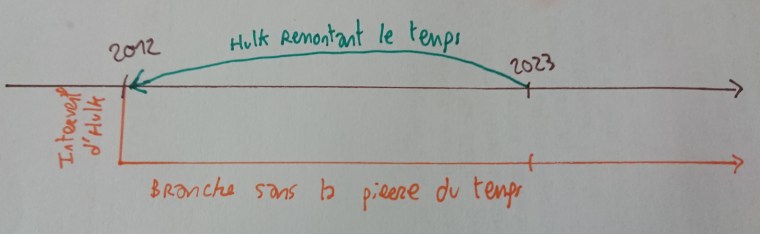 2012
Hulk Remontant le temps
2023
Intervent°
d'Hulk
Branche sans la pierre du temps